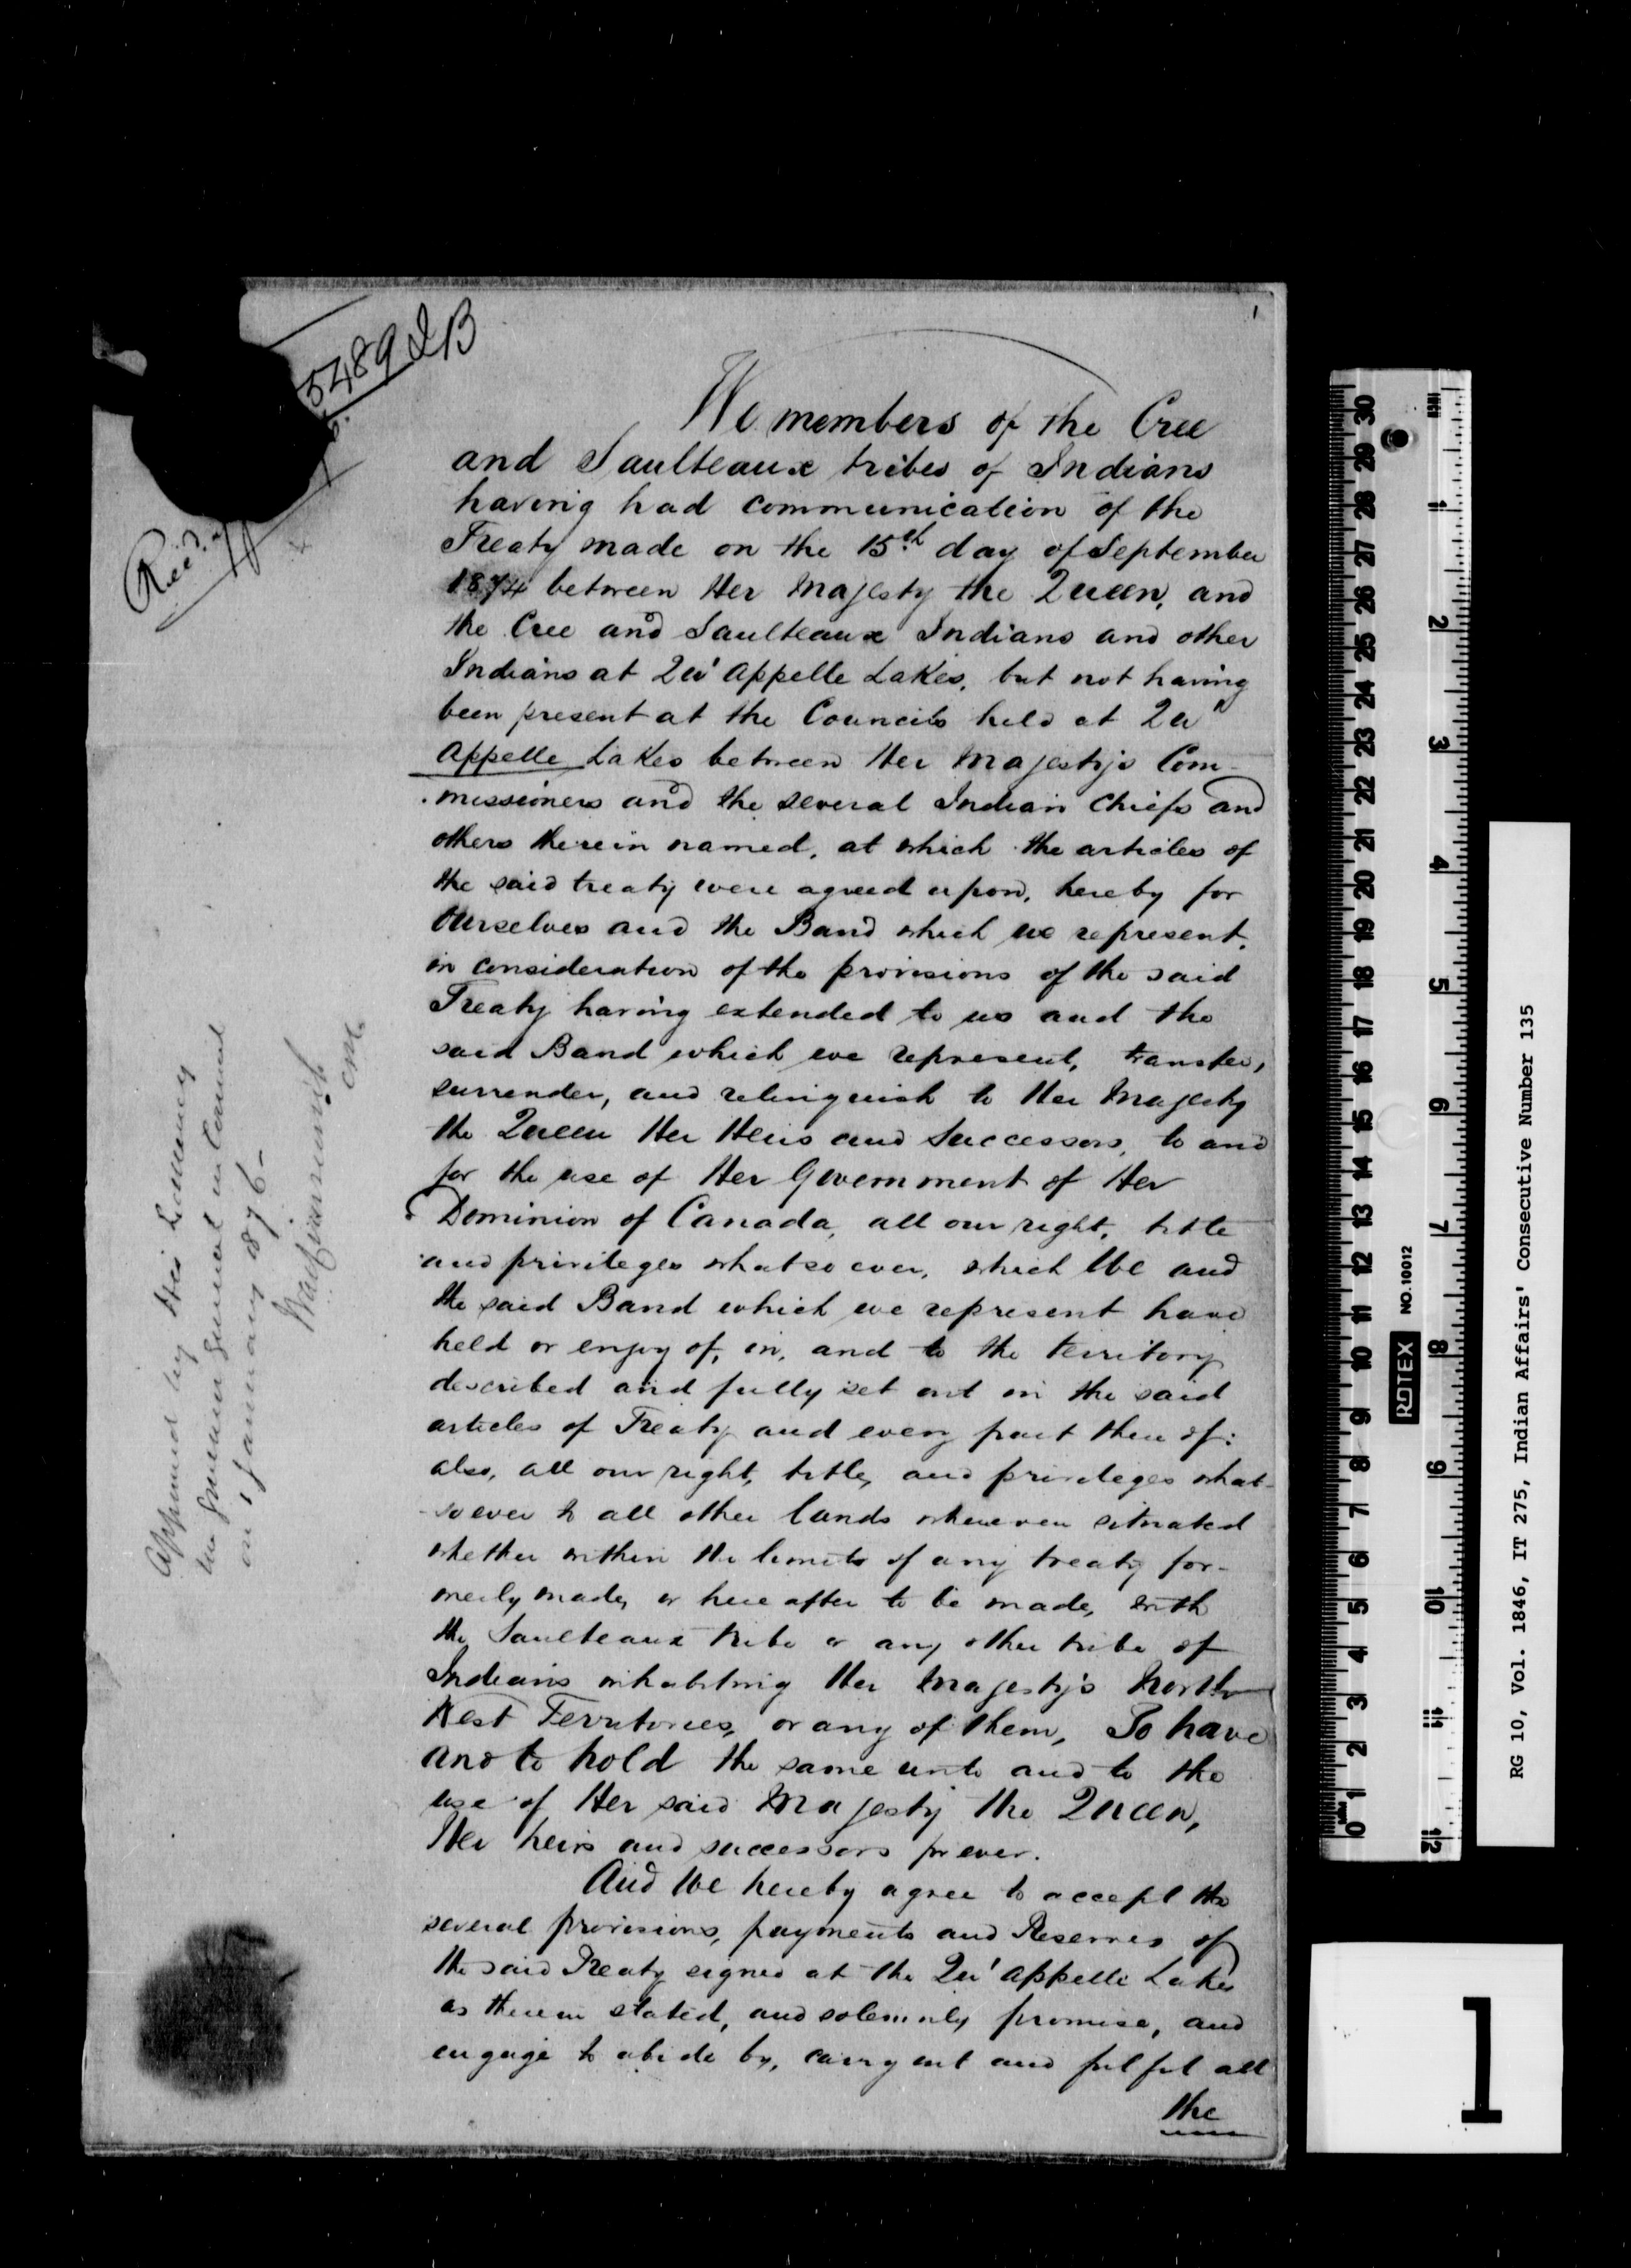 5489 IB
Rec'd.
1
We members of the Cree
and Saulteaux tribes of Indians
having had communication of the
Treaty made on the 15th day of September
1874 between Her Majesty the Queen, and
the Cree and Saulteaux Indians and other
Indians at Qu' Appelle Lakes, but not having
been present at the Councils held at Qu'
Appelle Lakes between Her Majesty's Com-
missioners and the several Indian Chiefs and
others therein named, at which the articles of
the said treaty were agreed upon, hereby for
Ourselves and the Band which we represent,
in consideration of the provisions of the said
Treaty having extended to us and the
said Band which we represent, transfer,
surrender, and relinquish to Her Majesty
the Queen Her Heirs and Successors, to and
for the use of Her Government of Her
Dominion of Canada, all our right, title
and privileges whatsoever, which We and
the said Band which we represent have
held or enjoy of, in, and to the territory
described and fully set out in the said
articles of Treaty and every part thereof:
also, all our right, title, and privileges what-
-soever to all other lands wherever situated
whether within the limits of any treaty for-
merly made, or here after to be made, with
the Saulteaux tribe or any other tribe of
Indians inhabiting Her Majesty's North
West Territories, or any of them, To have
and to hold the same unto and to the
use of Her said Majesty the Queen,
Her heirs and successors forever.
And We hereby agree to accept the
several provisions, payments and Reserves of
the said Treaty signed at the Qu' Appelle Lakes
as therein stated, and solemnly promise, and
engage to abide by, carry out and fulfil all
the
Approved by His Excellency
the Governor General in Council
on January 1876-
RG 10, Vol. 1846, IT 275, Indian Affairs' Consecutive Number 135
ROTEX NO. 10012
1